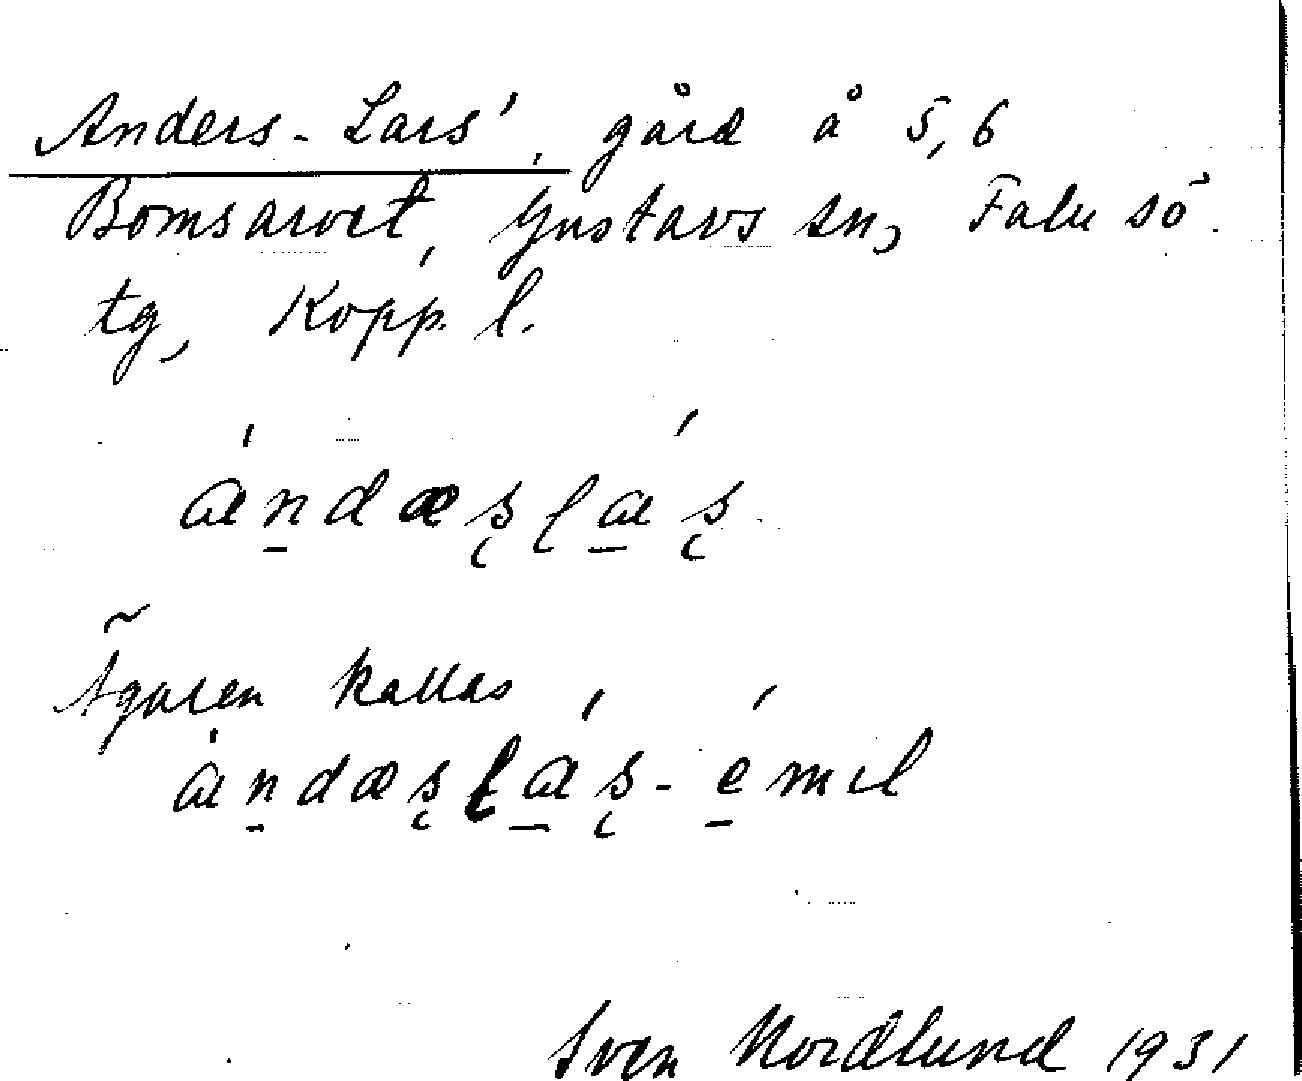 Anders-Lars', gård å 5,6
Bomsarvet, Gustavs sn, Falu sö
tg, Kopp. l.
Ägaren kallas
Sven Nordlund 1931